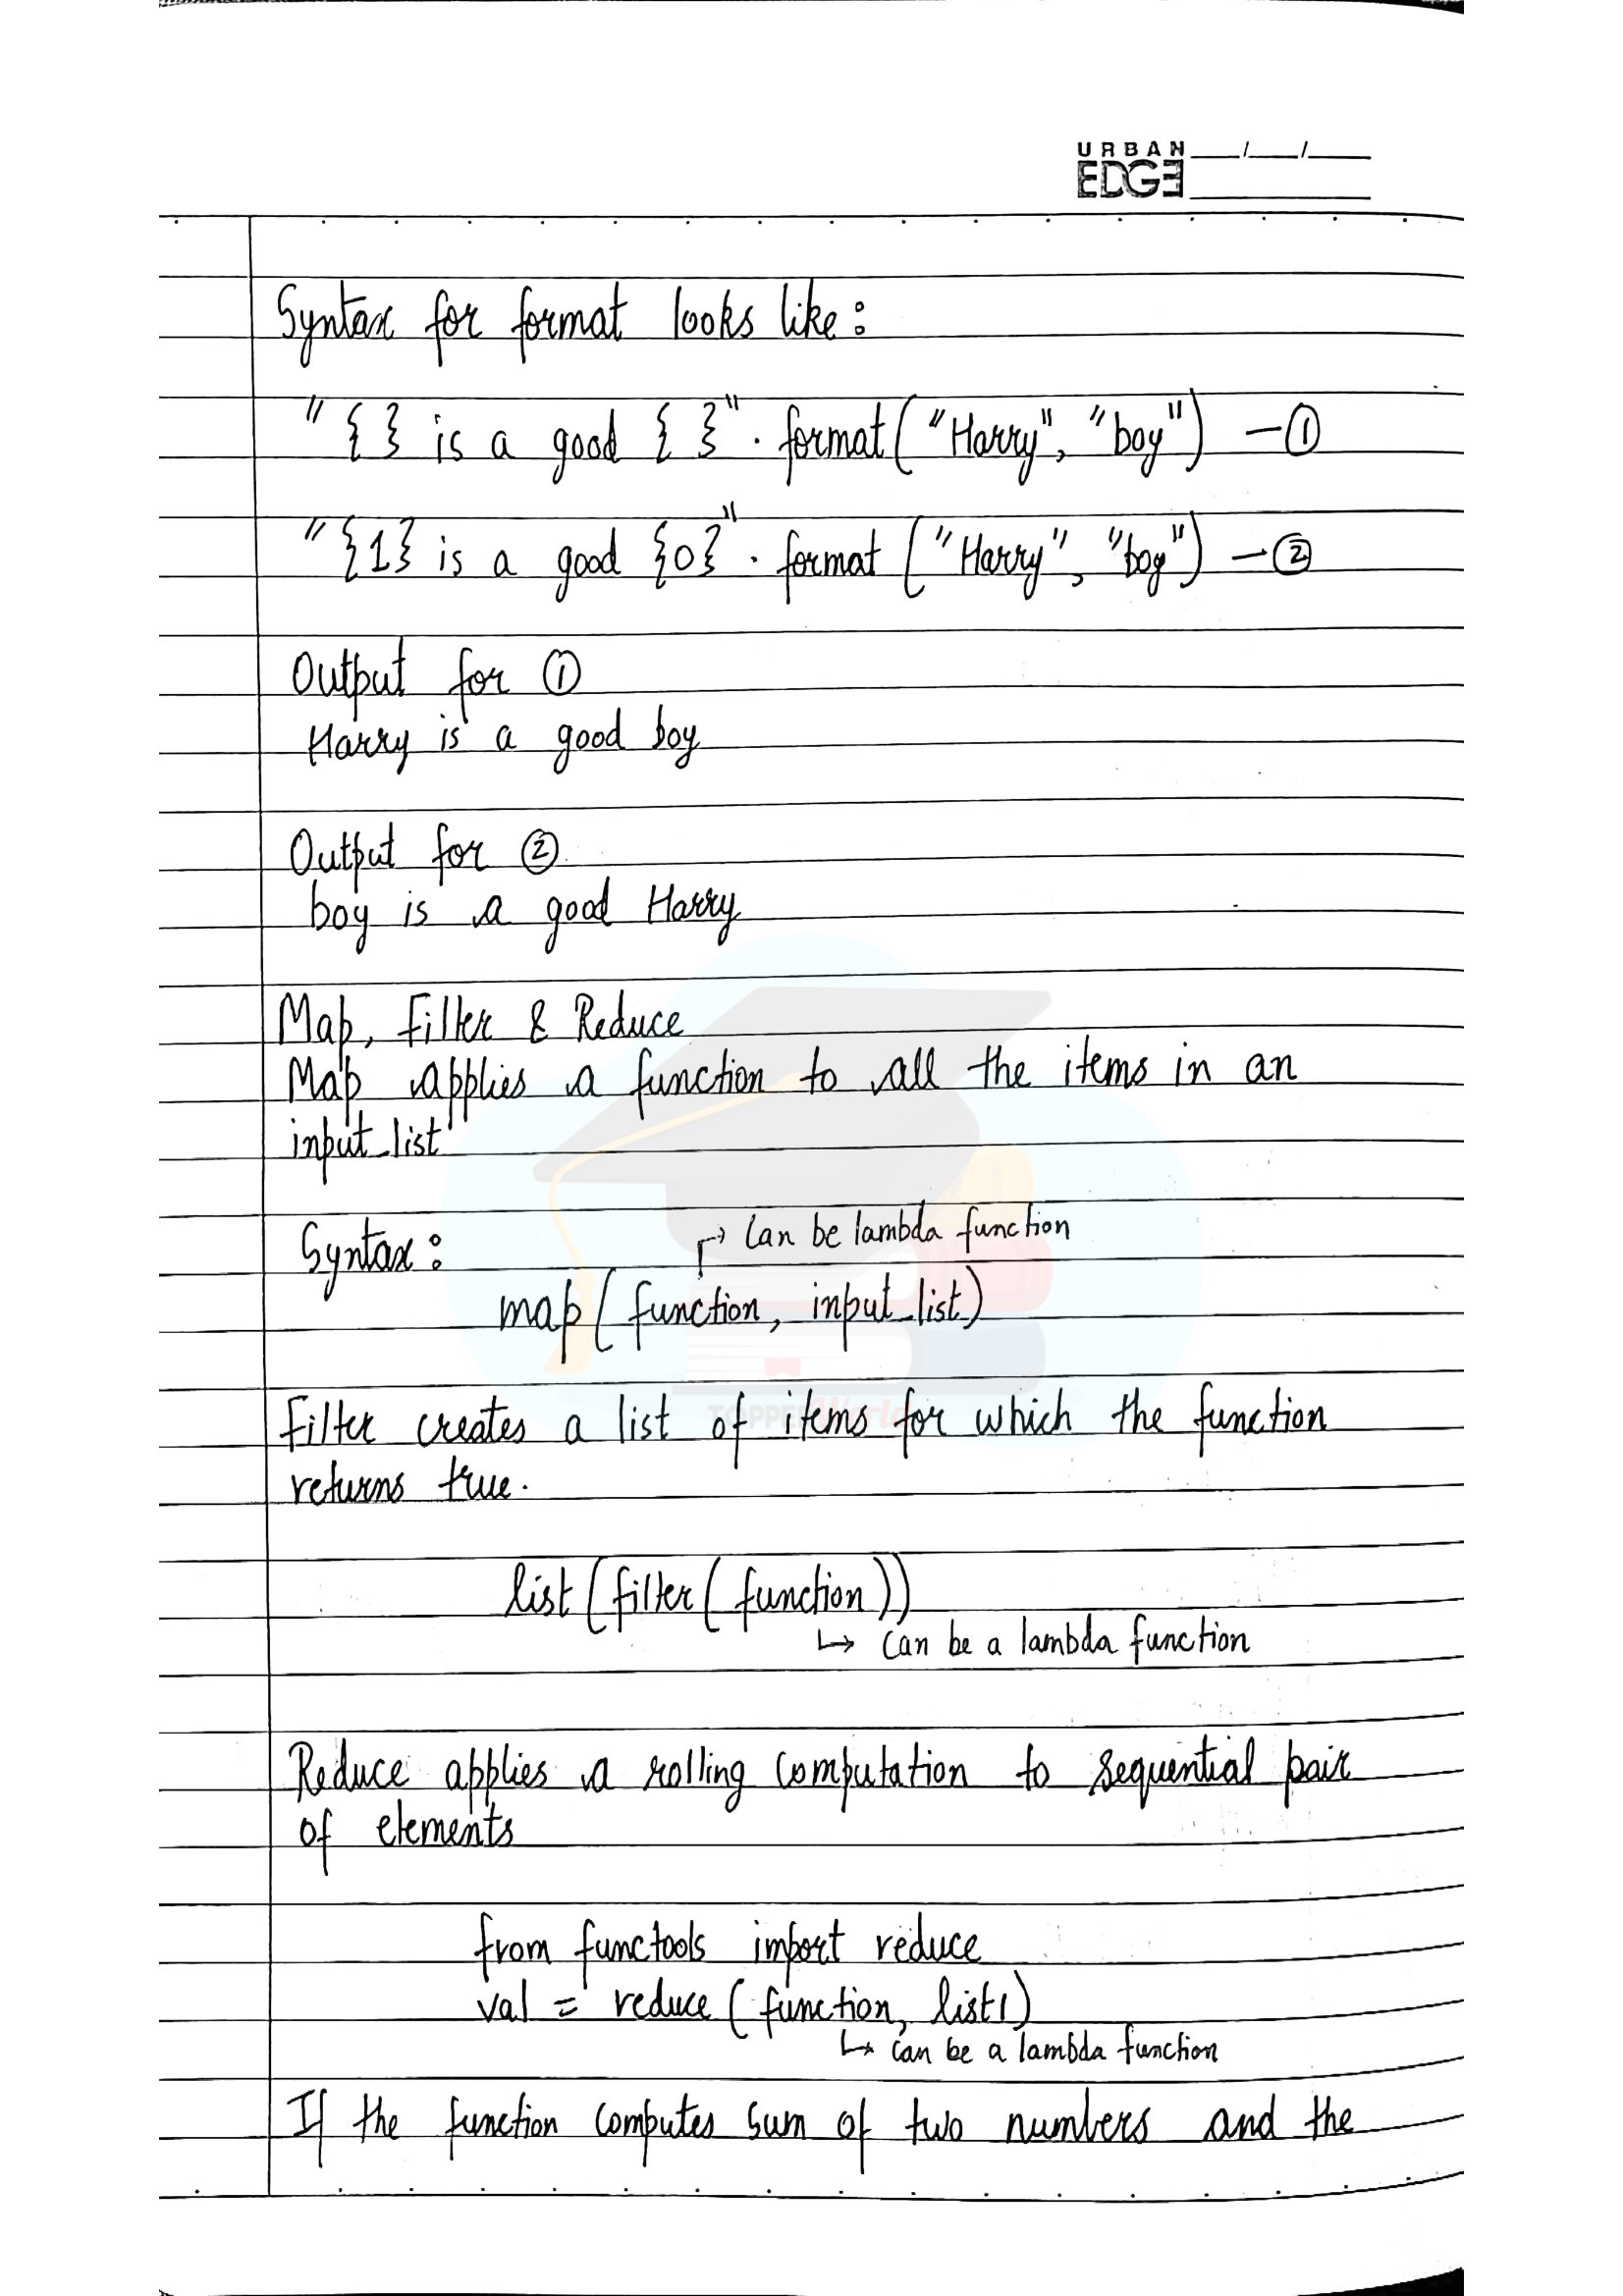 URBAN
EDGE
Syntax for format looks like:
"{ } is a good { }" . format("Harry", "boy") - ①
"{1} is a good {0}" . format ("Harry", "boy") - ②
Output for ①
Harry is a good boy
Output for ②
boy is a good Harry
Map, Filter & Reduce
Map applies a function to all the items in an
input_list
Syntax:
↱ Can be lambda function
map(function, input_list)
TOPPER World
Filter creates a list of items for which the function
returns true.
list(filter(function))
↳ can be a lambda function
Reduce applies a rolling computation to sequential pair
of elements
from functools import reduce
val = reduce (function, list1)
↳ can be a lambda function
If the function computes sum of two numbers and the